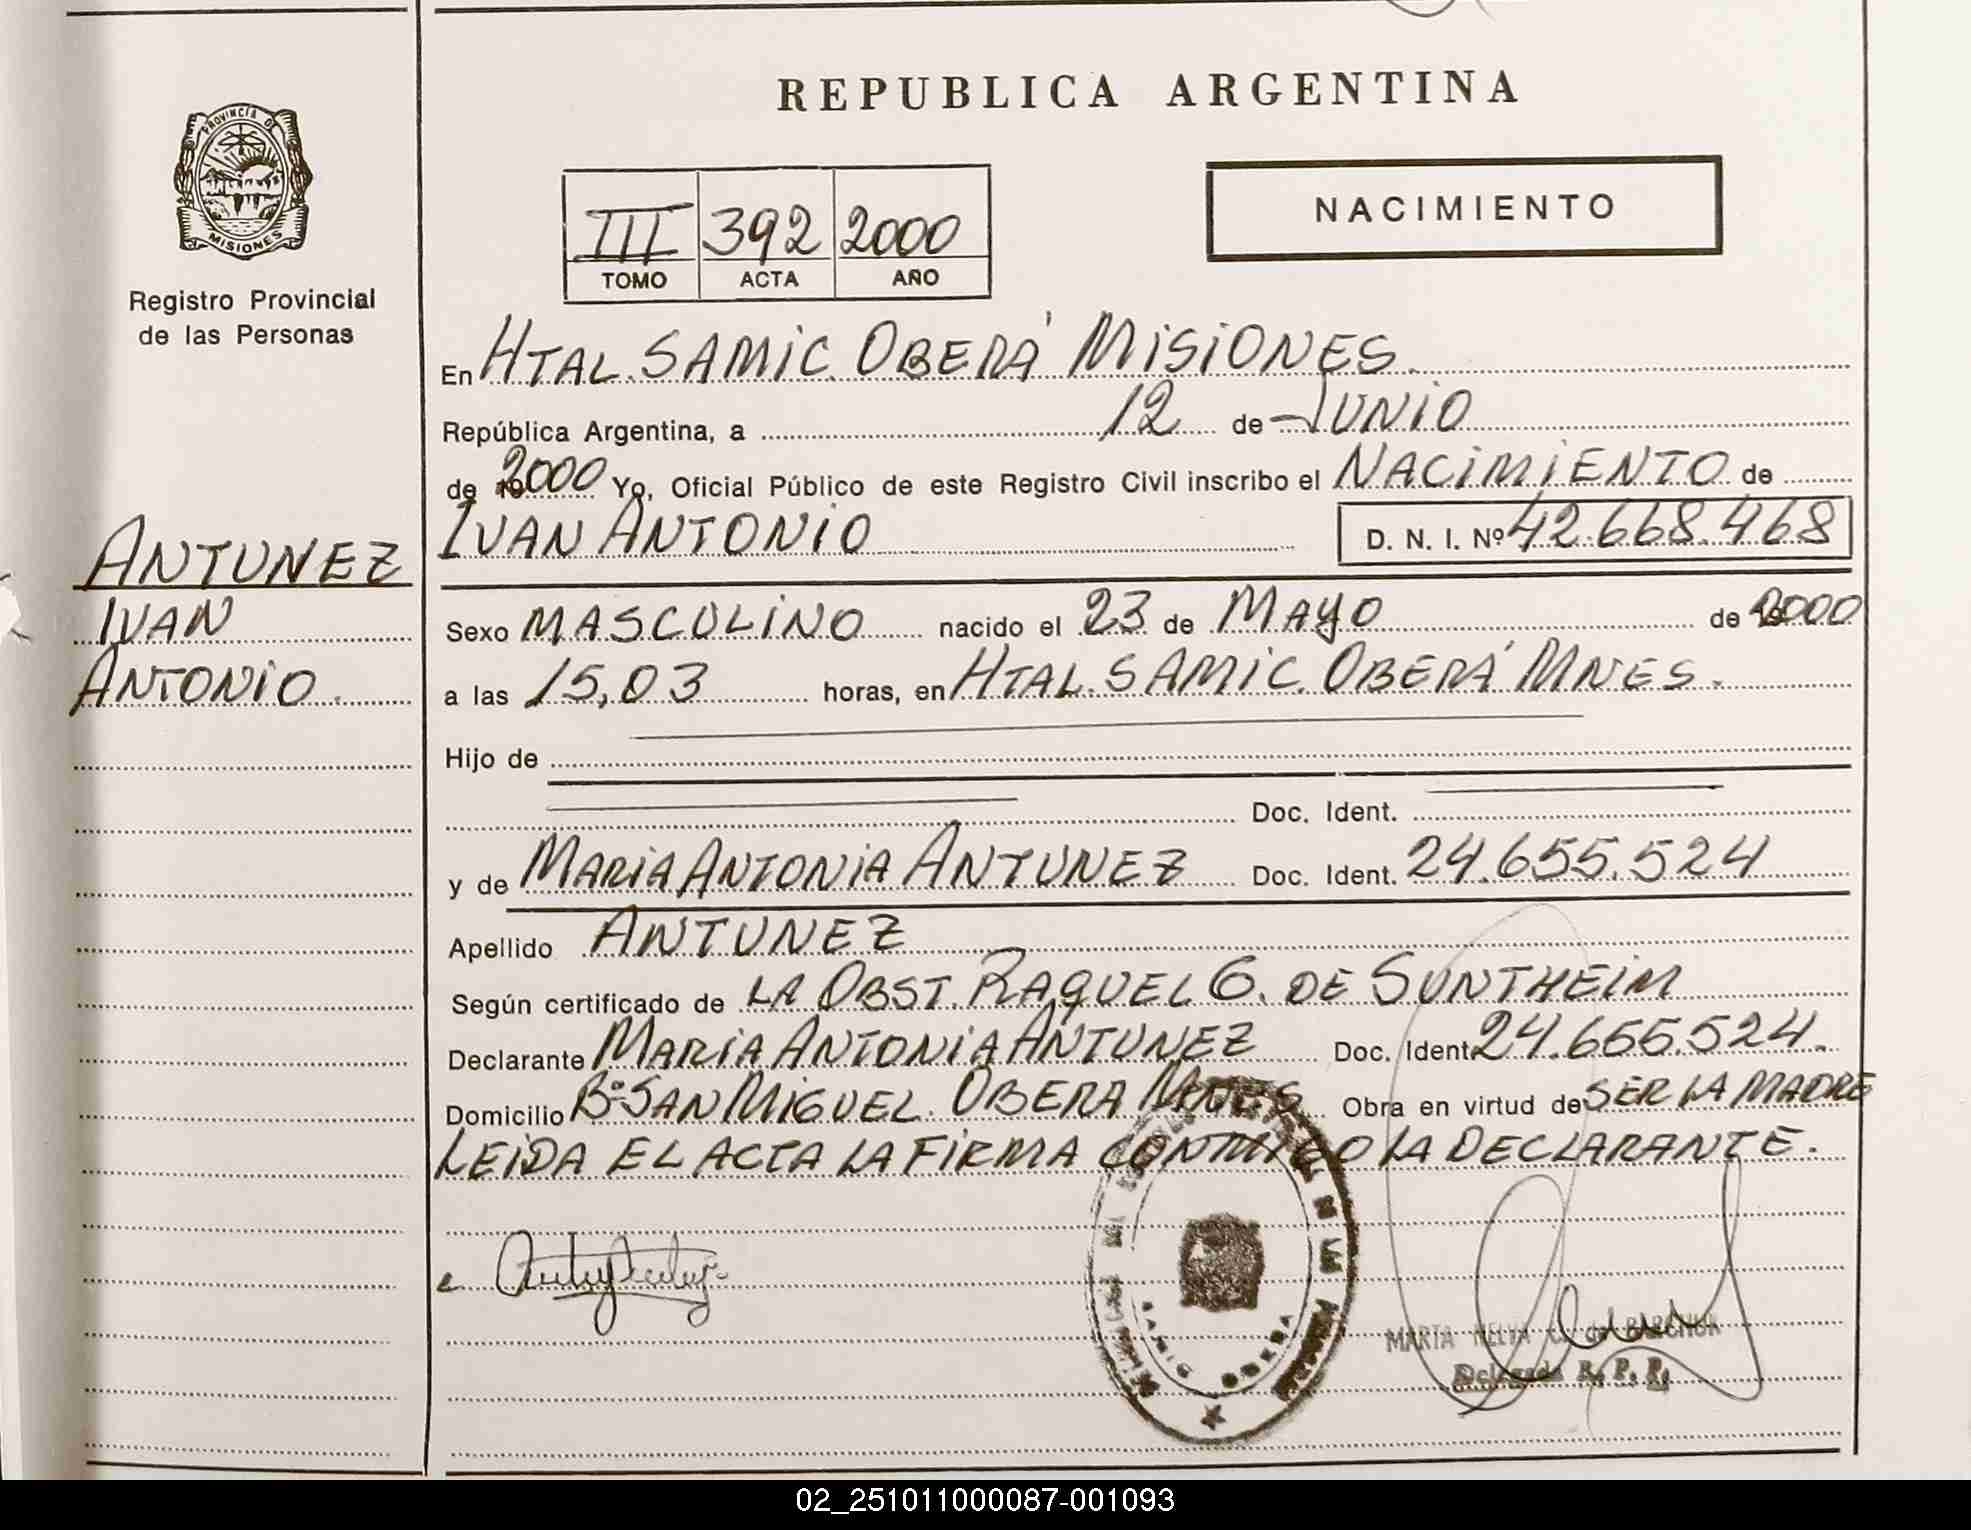 REPUBLICA ARGENTINA
PROVINCIA DE
MISIONES
Registro Provincial
de las Personas
III 392 2000
TOMO ACTA AÑO
NACIMIENTO
En HTAL. SAMIC. OBERÁ MISIONES.
República Argentina, a 12 de JUNIO
de 2000 Yo, Oficial Público de este Registro Civil inscribo el NACIMIENTO de
IVAN ANTONIO D. N. I. Nº 42.668.468
ANTUNEZ
IVAN
ANTONIO.
Sexo MASCULINO nacido el 23 de MAYO de 2000
a las 15,03 horas, en HTAL. SAMIC. OBERÁ MNES.
Hijo de
Doc. Ident.
y de MARIA ANTONIA ANTUNEZ Doc. Ident. 24.655.524
Apellido ANTUNEZ
Según certificado de LA OBST. RAQUEL G. DE SUNTHEIM
Declarante MARIA ANTONIA ANTUNEZ Doc. Ident. 24.655.524.
Domicilio Bº SAN MIGUEL. OBERA MNES Obra en virtud de SER LA MADRE
LEIDA EL ACTA LA FIRMA CONMIGO LA DECLARANTE.
OBERA
MARTA NELVA C. de BARCHUK
Delegada R. P. P.
02_251011000087-001093